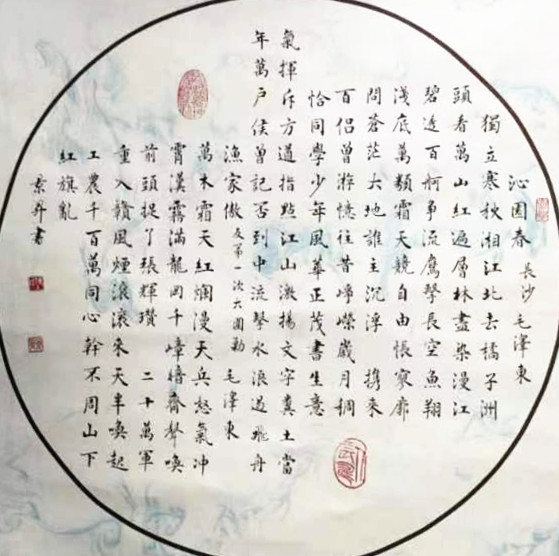 沁園春 長沙 毛澤東
獨立寒秋湘江北去橘子洲
頭看萬山紅遍層林盡染漫江
碧透百舸爭流鷹擊長空魚翔
淺底萬類霜天競自由悵寥廓
問蒼茫大地誰主沉浮 攜來
百侶曾游憶往昔崢嶸歲月稠
恰同學少年風華正茂書生意
氣揮斥方遒指點江山激揚文字糞土當
年萬戶侯曾記否到中流擊水浪遏飛舟
漁家傲 反第一次大圍勦 毛澤東
萬木霜天紅爛漫天兵怒氣沖
霄漢霧滿龍岡千嶂暗齊聲喚
前頭捉了張輝瓚 二十萬軍
重入贛風煙滾滾來天半喚起
工農千百萬同心幹不周山下
紅旗亂
景昇書